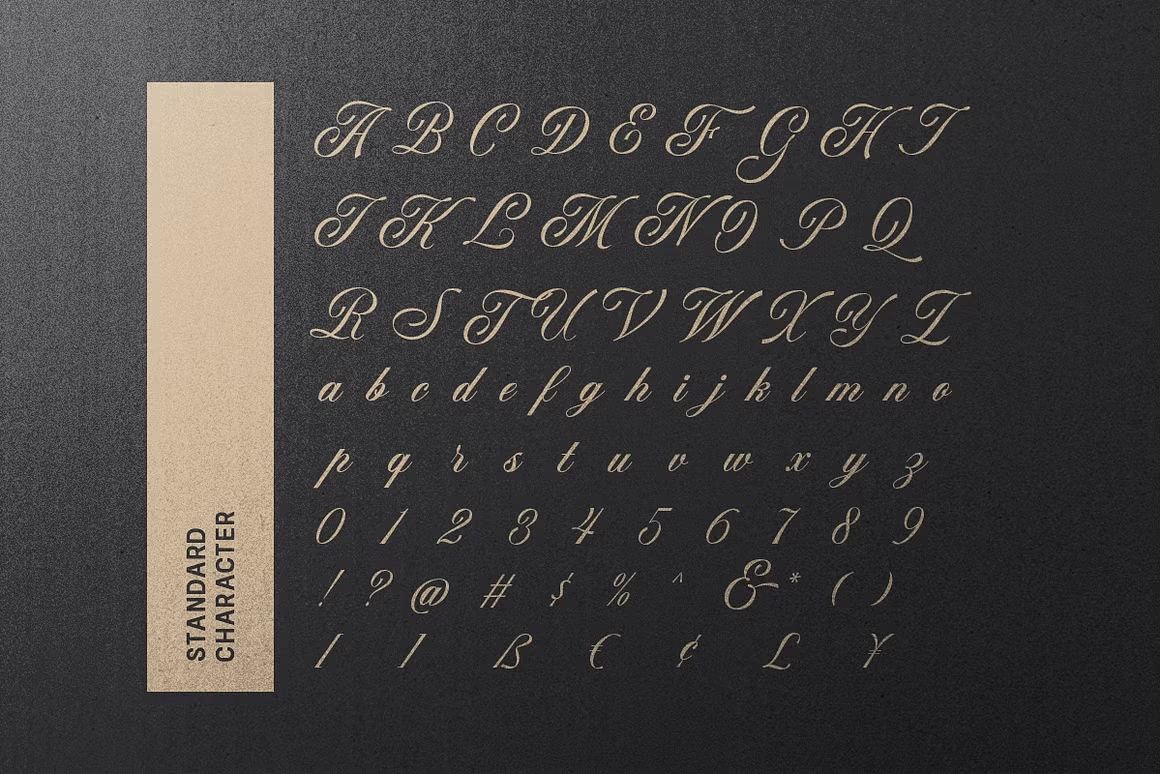 STANDARD
CHARACTER
A B C D E F G H I
J K L M N O P Q
R S T U V W X Y Z
a b c d e f g h i j k l m n o
p q r s t u v w x y z
0 1 2 3 4 5 6 7 8 9
! ? @ # $ % ^ & * ( )
ß € ¢ £ ¥